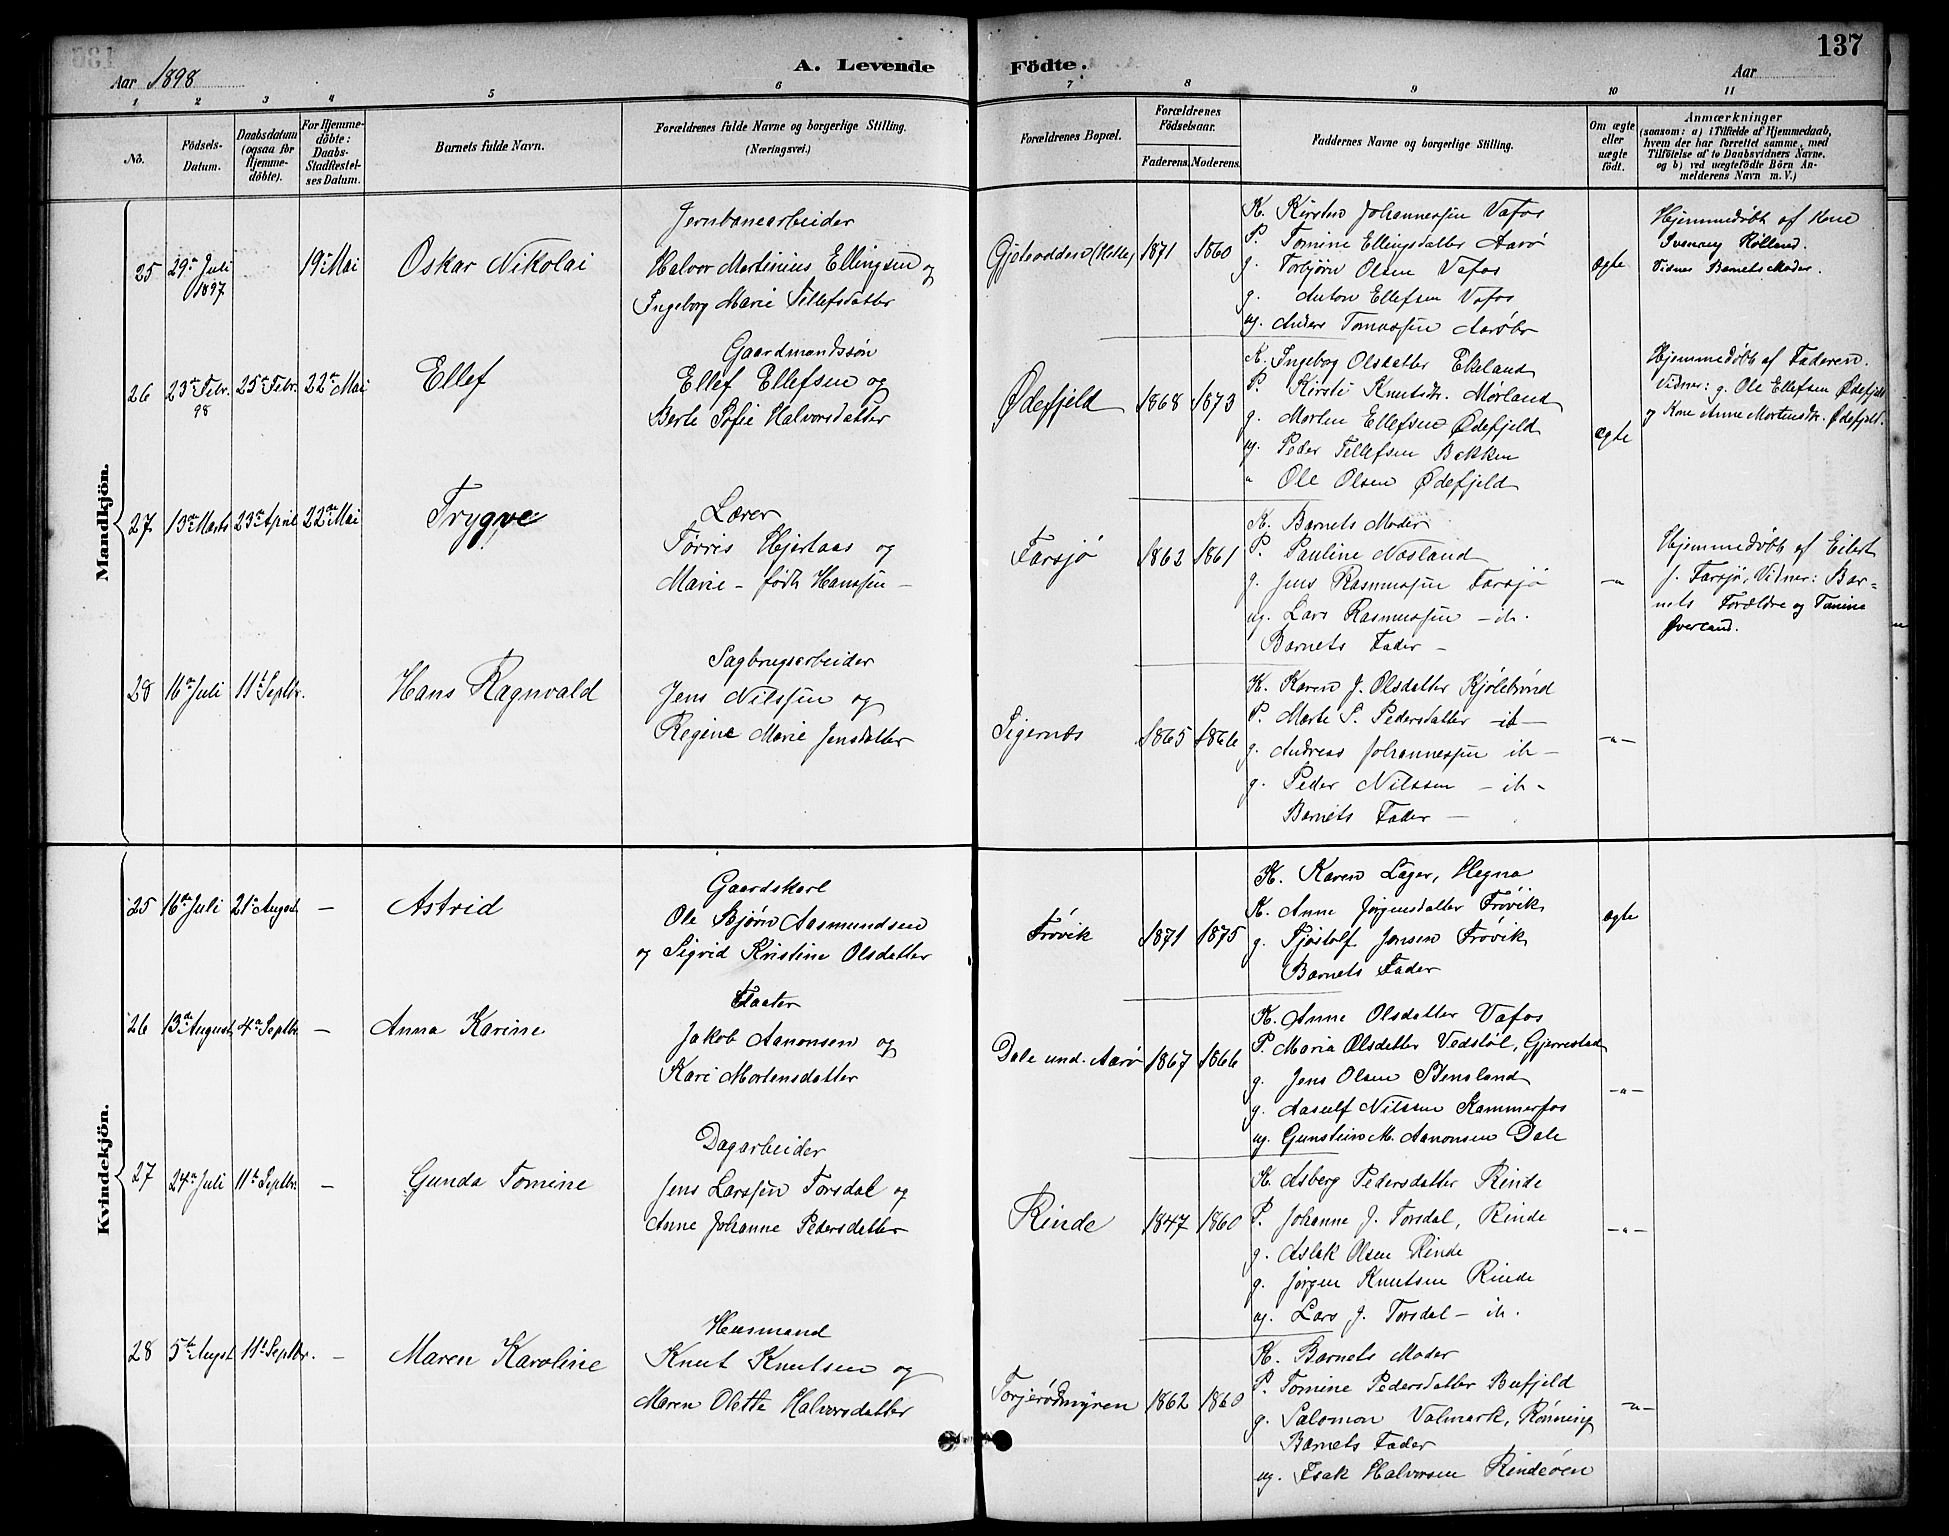 Aar 1898
A. Levende
Födte.
137
Aar
1 2 3 4 5 6 7 8 9 10 11
No.
Födsels-
Datum.
Daabsdatum
(ogsaa for
Hjemme-
döbte).
For Hjemme-
döbte:
Daabs-
Stadfæstel-
ses Datum.
Barnets fulde Navn.
Forældrenes fulde Navne og borgerlige Stilling.
(Næringsvei.)
Forældrenes Bopæl.
Forældrenes
Födselsaar.
Faderens. Moderens.
Faddernes Navne og borgerlige Stilling.
Om ægte
eller
uægte
født.
Anmærkninger
(saasom: a) i Tilfælde af Hjemmedaab,
hvem der har forrettet samme, med
Tilföielse af to Daabsvidners Navne,
og b) ved uægtefödte Börn An-
melderens Navn m. V.)
Mandkjön.
25 29de Juli 1897. 19de Mai
Oskar Nikolai
Jernbanearbeider
Halvor Martinius Ellingsen og
Ingeborg Marie Tellefsdatter
1871 1860
K. Kirsten Johannessen Vafos
P. Tomine Ellingsdatter Aarö
g. Torbjørn Olsen Vafos
g. Anton Ellefsen Vafos
ug. Anders Tomassen
ægte
Hjemmedøbt af Kone
Rölland.
Vidnes Barnets Moder.
26 23de Febr. 98 25de Febr. 22de Mai
Ellef
Gaardmandssön
Ellef Ellefsen og
Berte Sofie Halvorsdatter
Ødefjeld 1868 1873
K. Ingebog Olsdatter Ekeland
P. Kirsti Knutsdr. Mørland
g. Morten Ellefsen Ødefjeld
ug. Peder Tellefsen Bakken
" Ole Olsen Ødefjeld
ægte
Hjemmedøbt af Faderen.
Vidner: g. Ole Ellefsen Ødefjeld
og Kone Anne Mortensdr. Ødefjeld.
27 13de Marts 23de April 22de Mai
Trygve
Lærer
Tørris Hjertaas og
Marie – født Hanssen –
Farsjø 1862 1861
K. Barnets Moder
P. Pauline Næsland
g. Jens Rasmussen Farsjø
ug. Lars Rasmussen – ib.
Barnets Fader –
–"–
Hjemmedøbt af Eilert
J. Farsjø, Vidner: Bar=
nets Forældre og Tomine
Øverland.
28 16de Juli 11te Septbr.
Hans Ragnvald
Sagbrugsarbeider
Jens Nilssen og
Regine Marie Jensdatter
Sigernes 1865 1866
K. Karen J. Olsdatter Kjølebrönd
P. Marte S. Pedersdatter – ib –
g. Andreas Johannessen ib –
g. Peder Nilssen – ib –
Barnets Fader –
–"–
Kvindekjön.
25 16de Juli 21de August –
Astrid
Gaardskarl
Ole Bjørn Aasmundsen
og Sigrid Kristine Olsdatter
Frövik 1871 1875
K. Karen Lager, Hegna
K. Anne Jørgensdatter Frövik
g. Tjöstolf Jensen Frövik
Barnets Fader
ægte
26 13de August 4de Septbr. –
Anna Karine
Jakob Aanonsen og
Kari Mortensdatter
Dale und. Aarö 1867 1866
K. Anne Olsdatter Vafos
P. Maria Olsdatter Vedstöl, Gjerrestad
g. Jens Olsen Stensland
g. Aasulf Nilssen Kammerfos
ug. Gunstein M. Aanonsen Dale
–"–
27 24de Juli 11te Septbr. –
Gunda Tomine
Dagarbeider
Jens Larssen Torsdal og
Anne Johanne Pedersdatter
Rinde 1847 1860
K. Asberg Pedersdatter Rinde
P. Johanne J. Torsdal, Rinde
g. Aslak Olsen Rinde
g. Jørgen Knutsen Rinde
ug. Lars J. Torsdal – ib.
–"–
28 5te August 11te Septbr. –
Maren Karoline
Husmand
Knut Knutsen og
Maren Olette Halvorsdatter
Torjerødmyren 1862 1860
K. Barnets Moder
P. Tomine Pedersdatter Bufjeld
g. Salomon Valmark, Rönning
Barnets Fader
ug. Isak Halvorsen Rindeöen
–"–